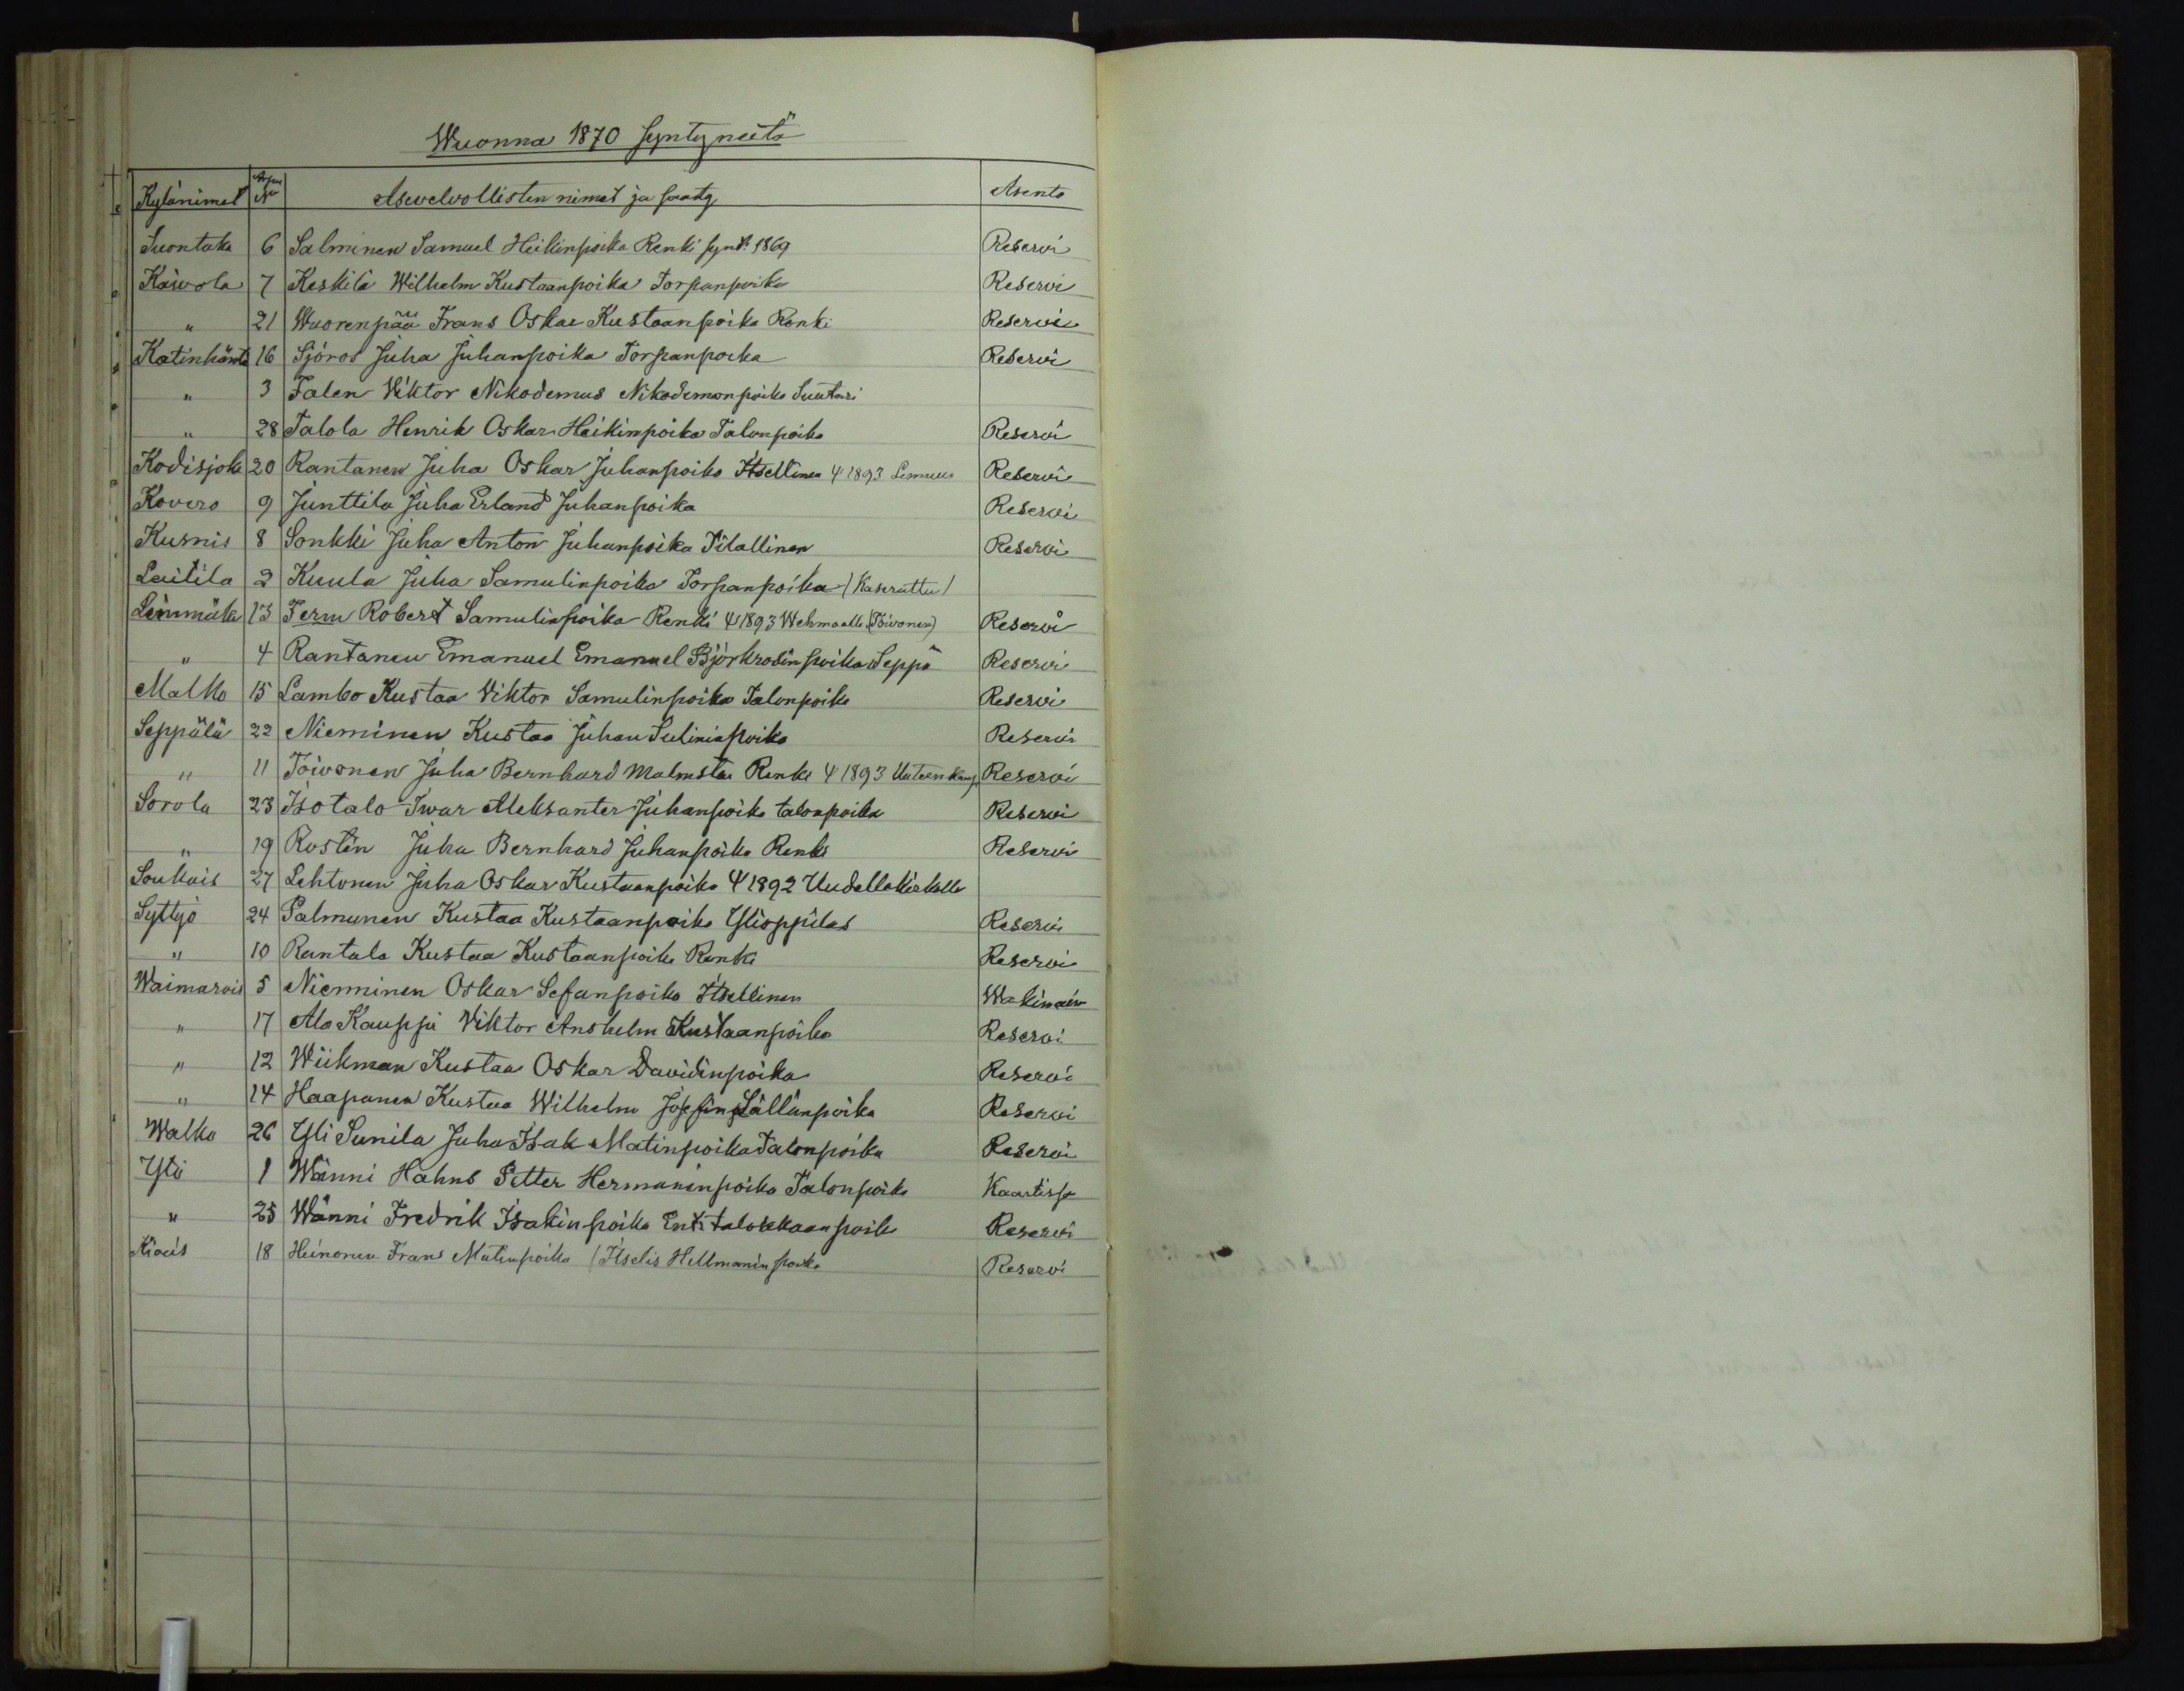 Wuonna 1870 syntyneitä
Kylänimet Arpa No Asevelvollisten nimet ja sääty Asento
Suontaka 6 Salminen Samuel Heikinpoika Renki synt. 1869 Reservi
Kaivola 7 Keskilä Wilhelm Kustaanpoika Torpanpoika Reservi
" 21 Wuorenpää Frans Oskar Kustaanpoika Renki Reservi
Katinhänta 16 Sjöros Juha Juhanpoika Torpanpoika Reservi
" 3 Falen Viktor Nikodemus Nikodemonpoika Suutari
" 28 Talola Henrik Oskar Heikinpoika Talonpoika Reservi
Kodisjoki 20 Rantanen Juha Oskar Juhanpoika Itsellinen Ψ 1893 Lemuun Reservi
Kovero 9 Junttila Juha Erland Juhanpoika Reservi
Kusnis 8 Sonkki Juha Anton Juhanpoika Tilallinen Reservi
Laitila 2 Kuula Juha Samulinpoika Torpanpoika (Kaserattu)
Leinmäki 13 Ferm Robert Samulinpoika Renki Ψ 1893 Wehmaalle (Toivonen) Reservi
" 4 Rantanen Emanuel Emanuel Björkrodinpoika Seppä Reservi
Malko 15 Lambo Kustaa Viktor Samulinpoika Talonpoika Reservi
Seppälä 22 Nieminen Kustaa Juhan Iulininpoika Reservi
" 11 Toivonen Juha Bernhard Malmsten Renki Ψ 1893 Uuteenkaup. Reservi
Sorola 23 Isotalo Iwar Aleksanter Juhanpoika talonpoika Reservi
" 19 Rostèn Juha Bernhard Juhanpoika Renki Reservi
Soukais 27 Lehtonen Juha Oskar Kustaanpoika Ψ 1892 Uudellekirkolle
Syttyö 24 Palmunen Kustaa Kustaanpoika Ylioppilas Reservi
" 10 Rantala Kustaa Kustaanpoika Renki Reservi
Waimarois 5 Nieminen Oskar Sefanpoika Itsellinen Wakinain
" 17 Ala Kauppi Viktor Anshelm Kustaanpoika Reservi
" 12 Wiikman Kustaa Oskar Davidinpoika Reservi
" 14 Haapanen Kustaa Wilhelm Josefin Sällinpoika Reservi
Walko 26 Yli Sunila Juha Isak Matinpoika Talonpoika Reservi
Ytö 1 Wänni Hahns Petter Hermaninpoika Talonpoika Kaartissa
" 25 Wänni Fredrik Isakinpoika Ent. talokkaanpoika Reservi
18 Heinonen Frans Matinpoika (Itselis Hellmaninpoika Reservi